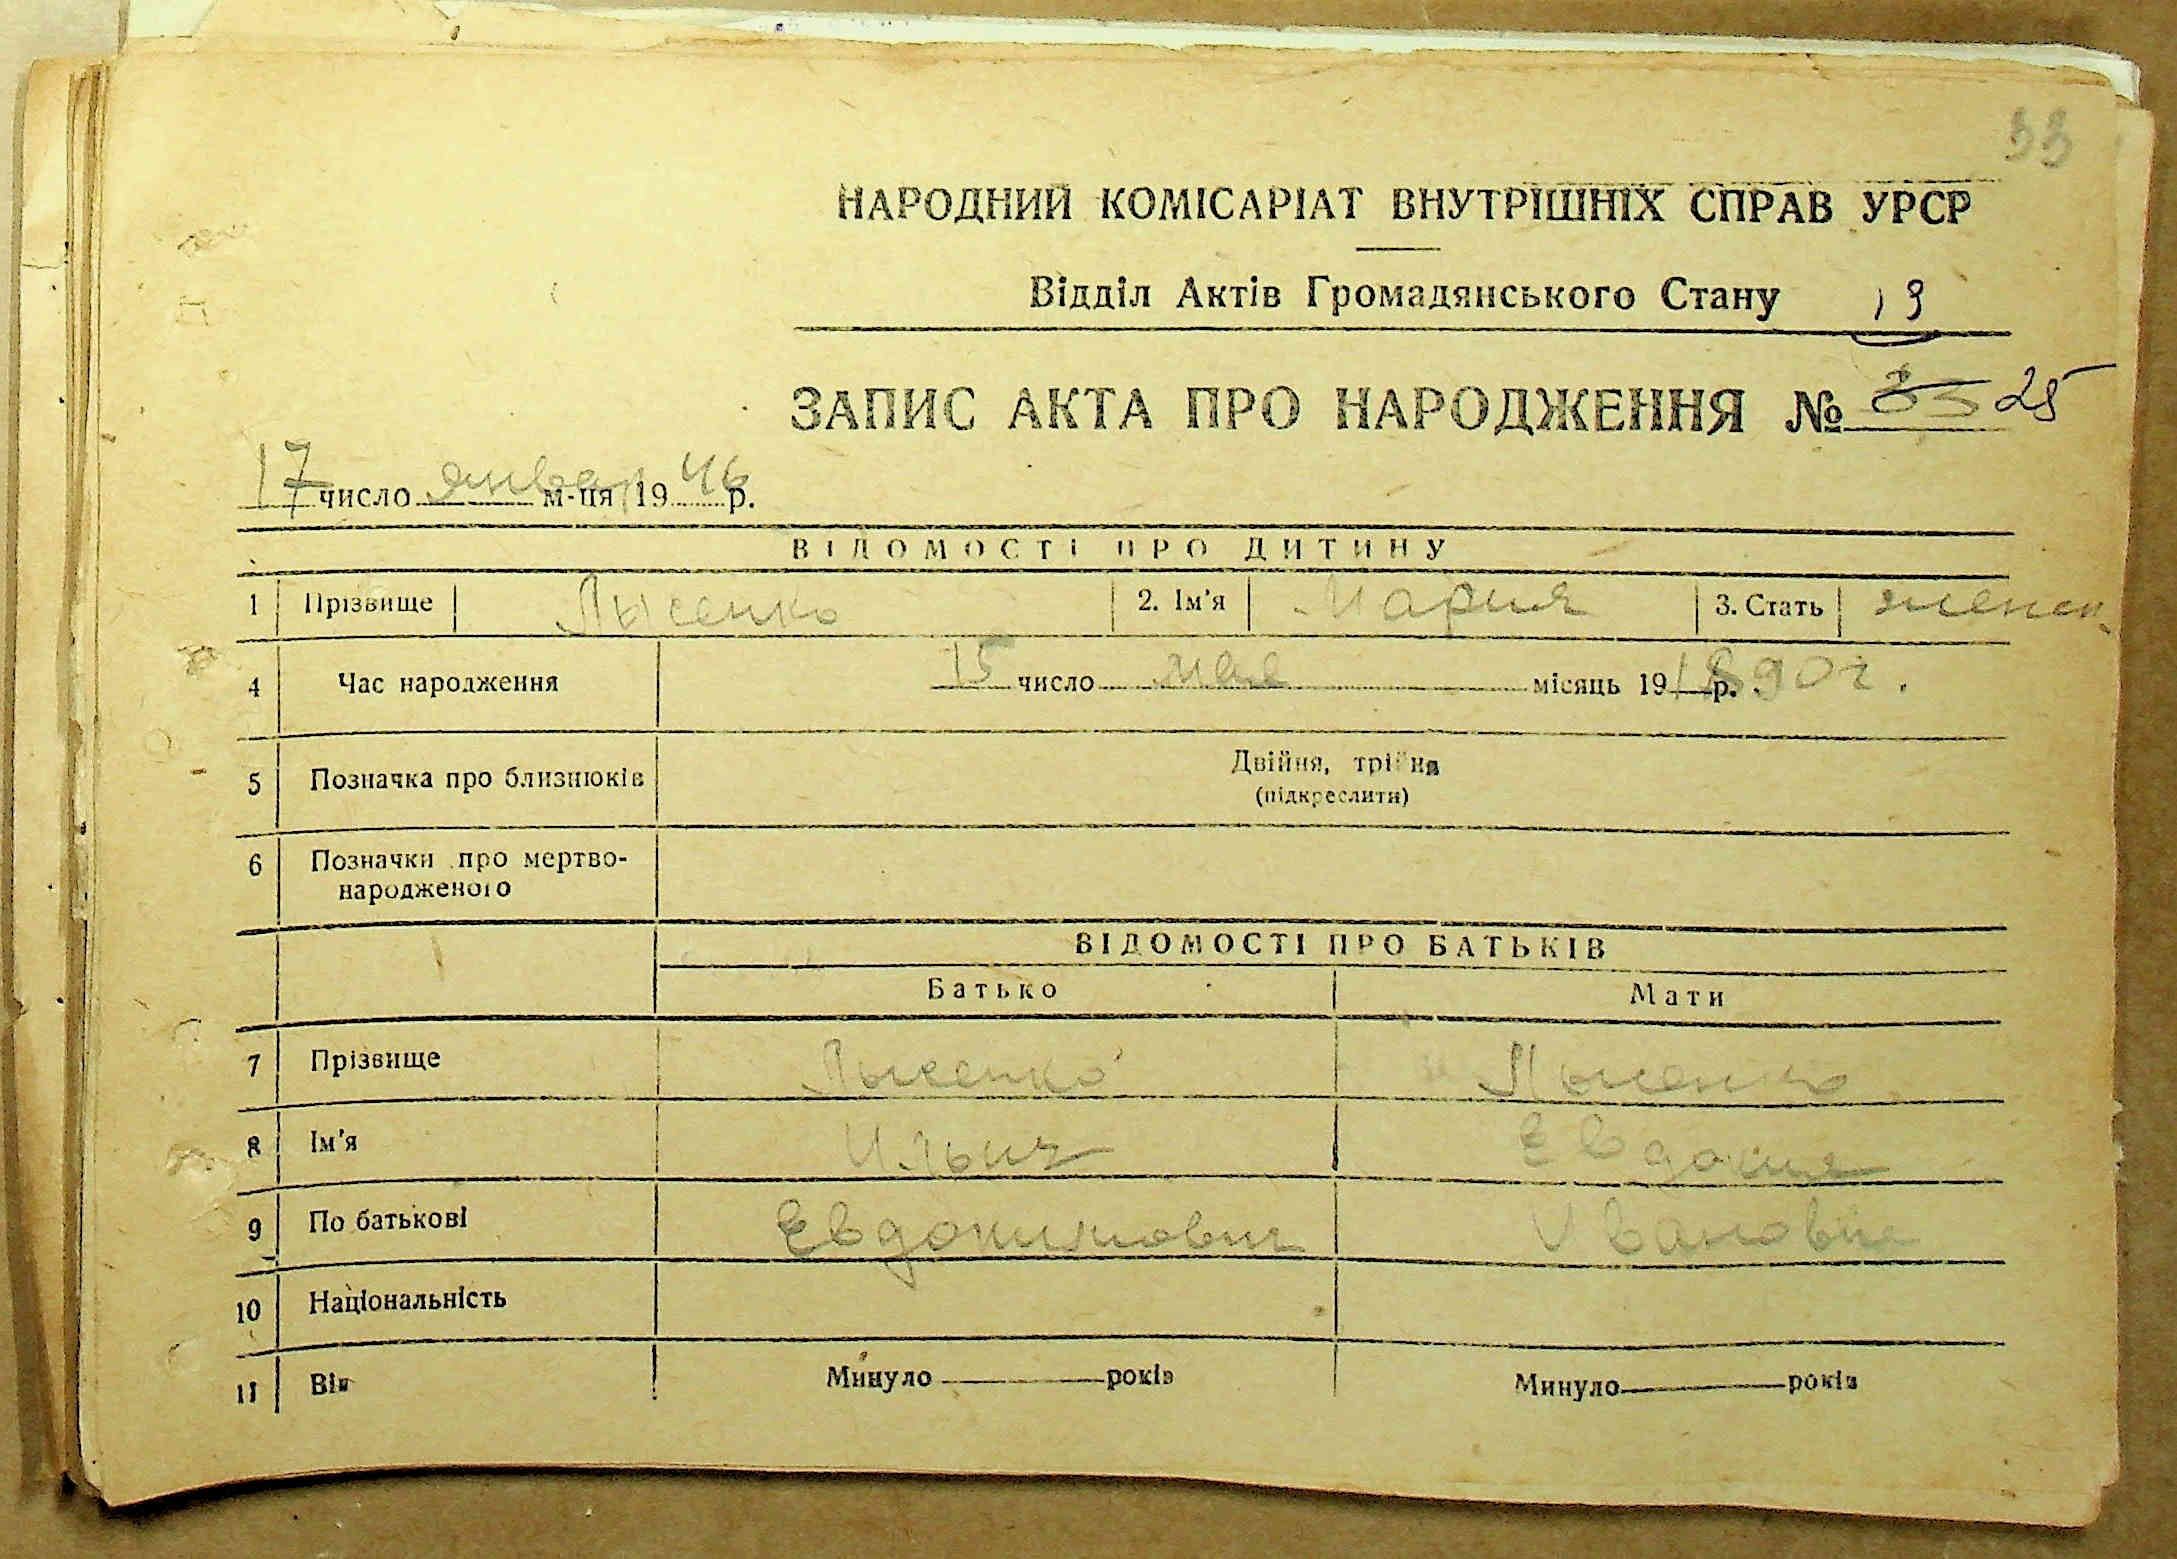 33
НАРОДНИЙ КОМІСАРІАТ ВНУТРІШНІХ СПРАВ УРСР
Відділ Актів Громадянського Стану 19
ЗАПИС АКТА ПРО НАРОДЖЕННЯ № 35 25
17 число январ м-ця 1946 р.
ВІДОМОСТІ ПРО ДИТИНУ
1 Прізвище Лысенко 2. Ім'я Мария 3. Стать женск.
4 Час народження 15 число мая місяць 19 р. 1890 г.
5 Позначка про близнюків Двійня, трійня
(підкреслити)
6 Позначки про мертво-
народженого
ВІДОМОСТІ ПРО БАТЬКІВ
Батько Мати
7 Прізвище Лысенко Лысенко
8 Ім'я Илья Евдокия
9 По батькові Евдокимович Ивановна
10 Національність
11 Вік Минуло років Минуло років